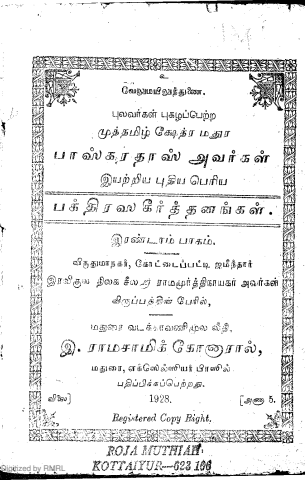 உ
வேலுமயிலுந்துணை.
புலவர்கள் புகழப்பெற்ற
முத்தமிழ் க்ஷேத்ர மதுர
பாஸ்கரதாஸ் அவர்கள்
இயற்றிய புதிய பெரிய
பக்திரஸகீர்த்தனங்கள்.
இரண்டாம் பாகம்.
விருதுமாநகர், கோட்டைப்பட்டி ஜமீந்தார்
இரவிகுல திலக ராமமூர்த்திநாயகர் அவர்கள்
விருப்பத்தின் பேரில்,
மதுரை வடக்காவணிமூல வீதி,
இ. ராமசாமிக் கோனாரால்,
மதுரை, எக்ஸெல்ஸியர் பிரஸில்
பதிப்பிக்கப்பெற்றது.
விலை] 1928. [அணா 5.
Registered Copy Right.
ROJA MUTHIAH
KOTTAIYUR—623 106
Digitized by RMRL